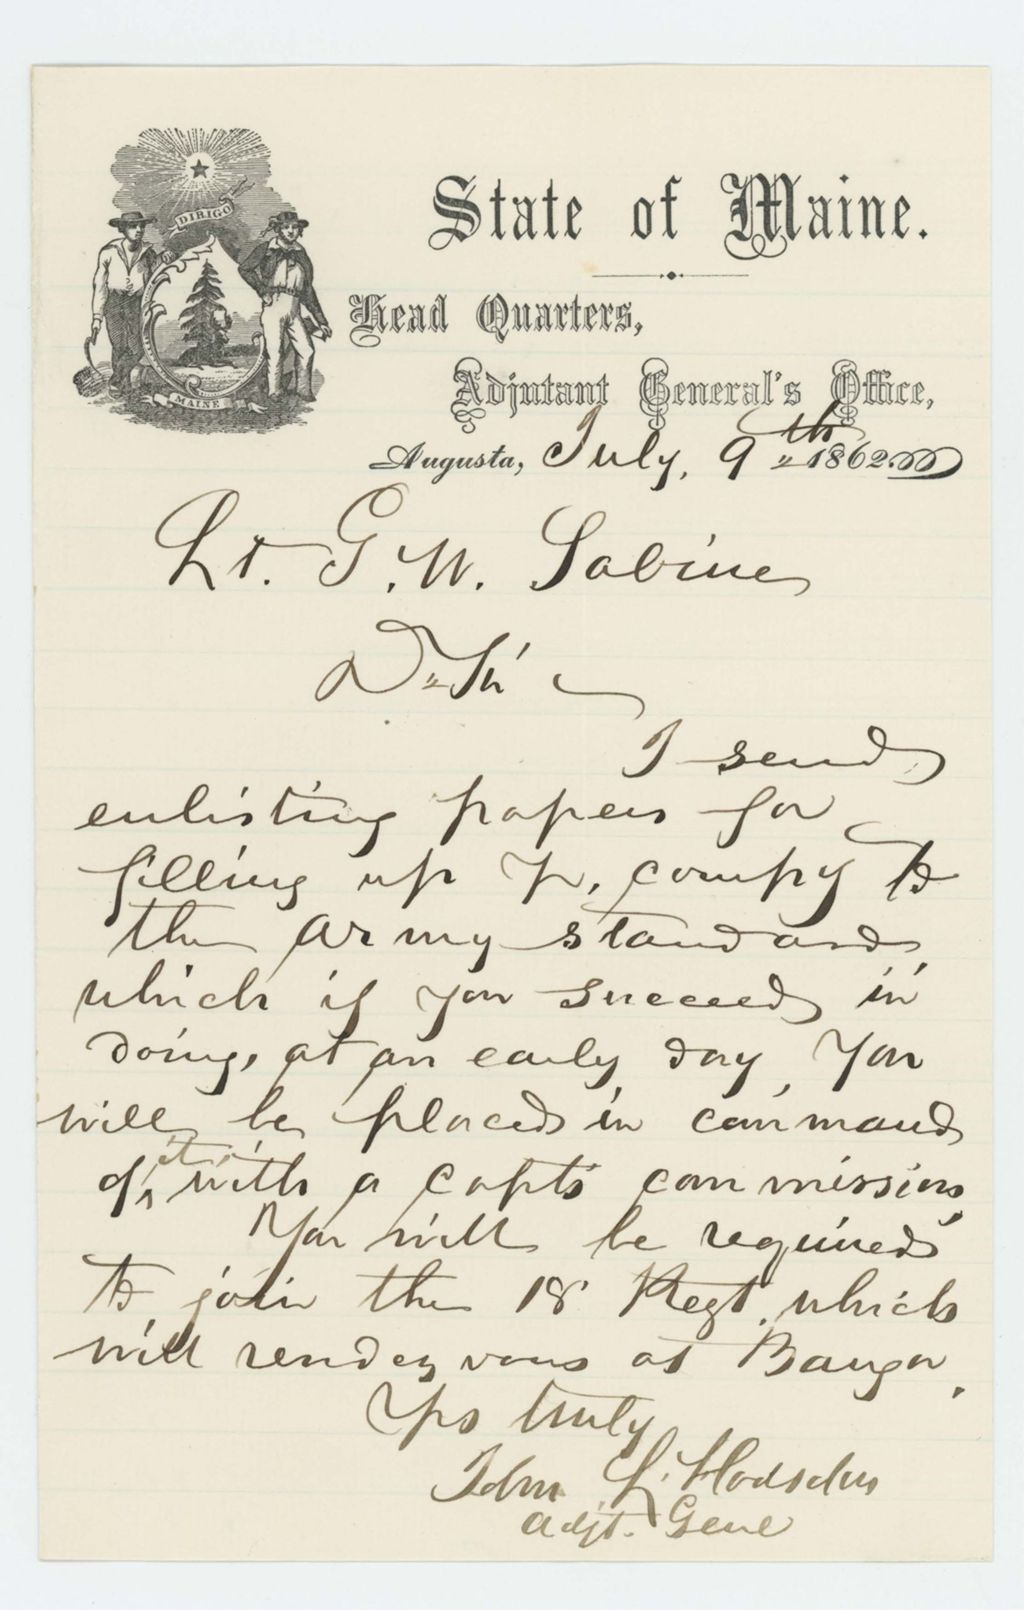 DIRIGO
MAINE
State of Maine.
Head Quarters,
Adjutant General's Office,
Augusta, July, 9th 1862.
Lt. G. W. Sabine
D Sir
I send
enlisting papers for
filling up yr. compy to
the army standard
which if you succeed in
doing, at an early day, You
will be placed in command
of it with a Capts commission,
You will be required
to join the 18 Regt. which
will rendezvous at Bangor.
Yrs truly
John L. Hodsdon
Adjt. Genl